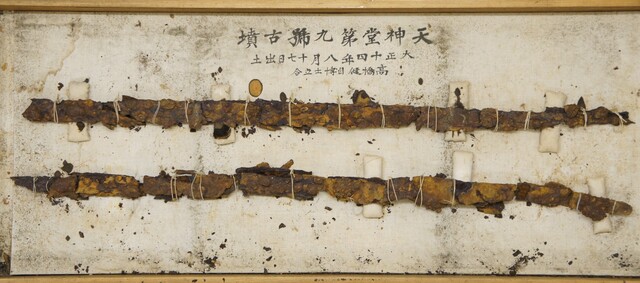 天神堂第九號古墳
大正十四年八月十七日出土
高橋健自博士立会